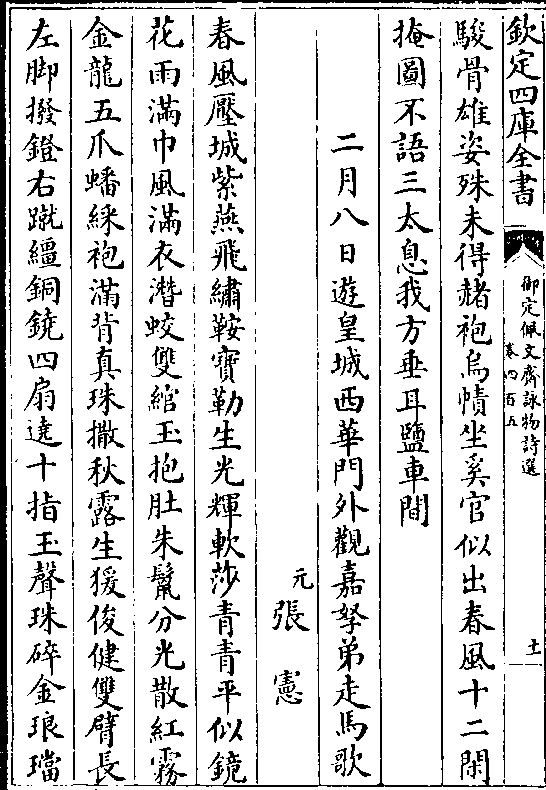 欽定四庫全書
御定佩文齋詠物詩選
卷四百五
十一
駿骨雄姿殊未得赭袍烏幘坐奚官似出春風十二閑
掩圖不語三太息我方垂耳鹽車間
二月八日遊皇城西華門外觀嘉孥弟走馬歌
元
張憲
春風壓城紫燕飛繡鞍寶勒生光輝軟莎青青平似鏡
花雨滿巾風滿衣潛蛟雙綰玉抱肚朱鬣分光散紅霧
金龍五爪蟠綵袍滿背真珠撒秋露生猨俊健雙臂長
左脚撥鐙右蹴繮銅鐃四扇遶十指玉聲珠碎金琅璫